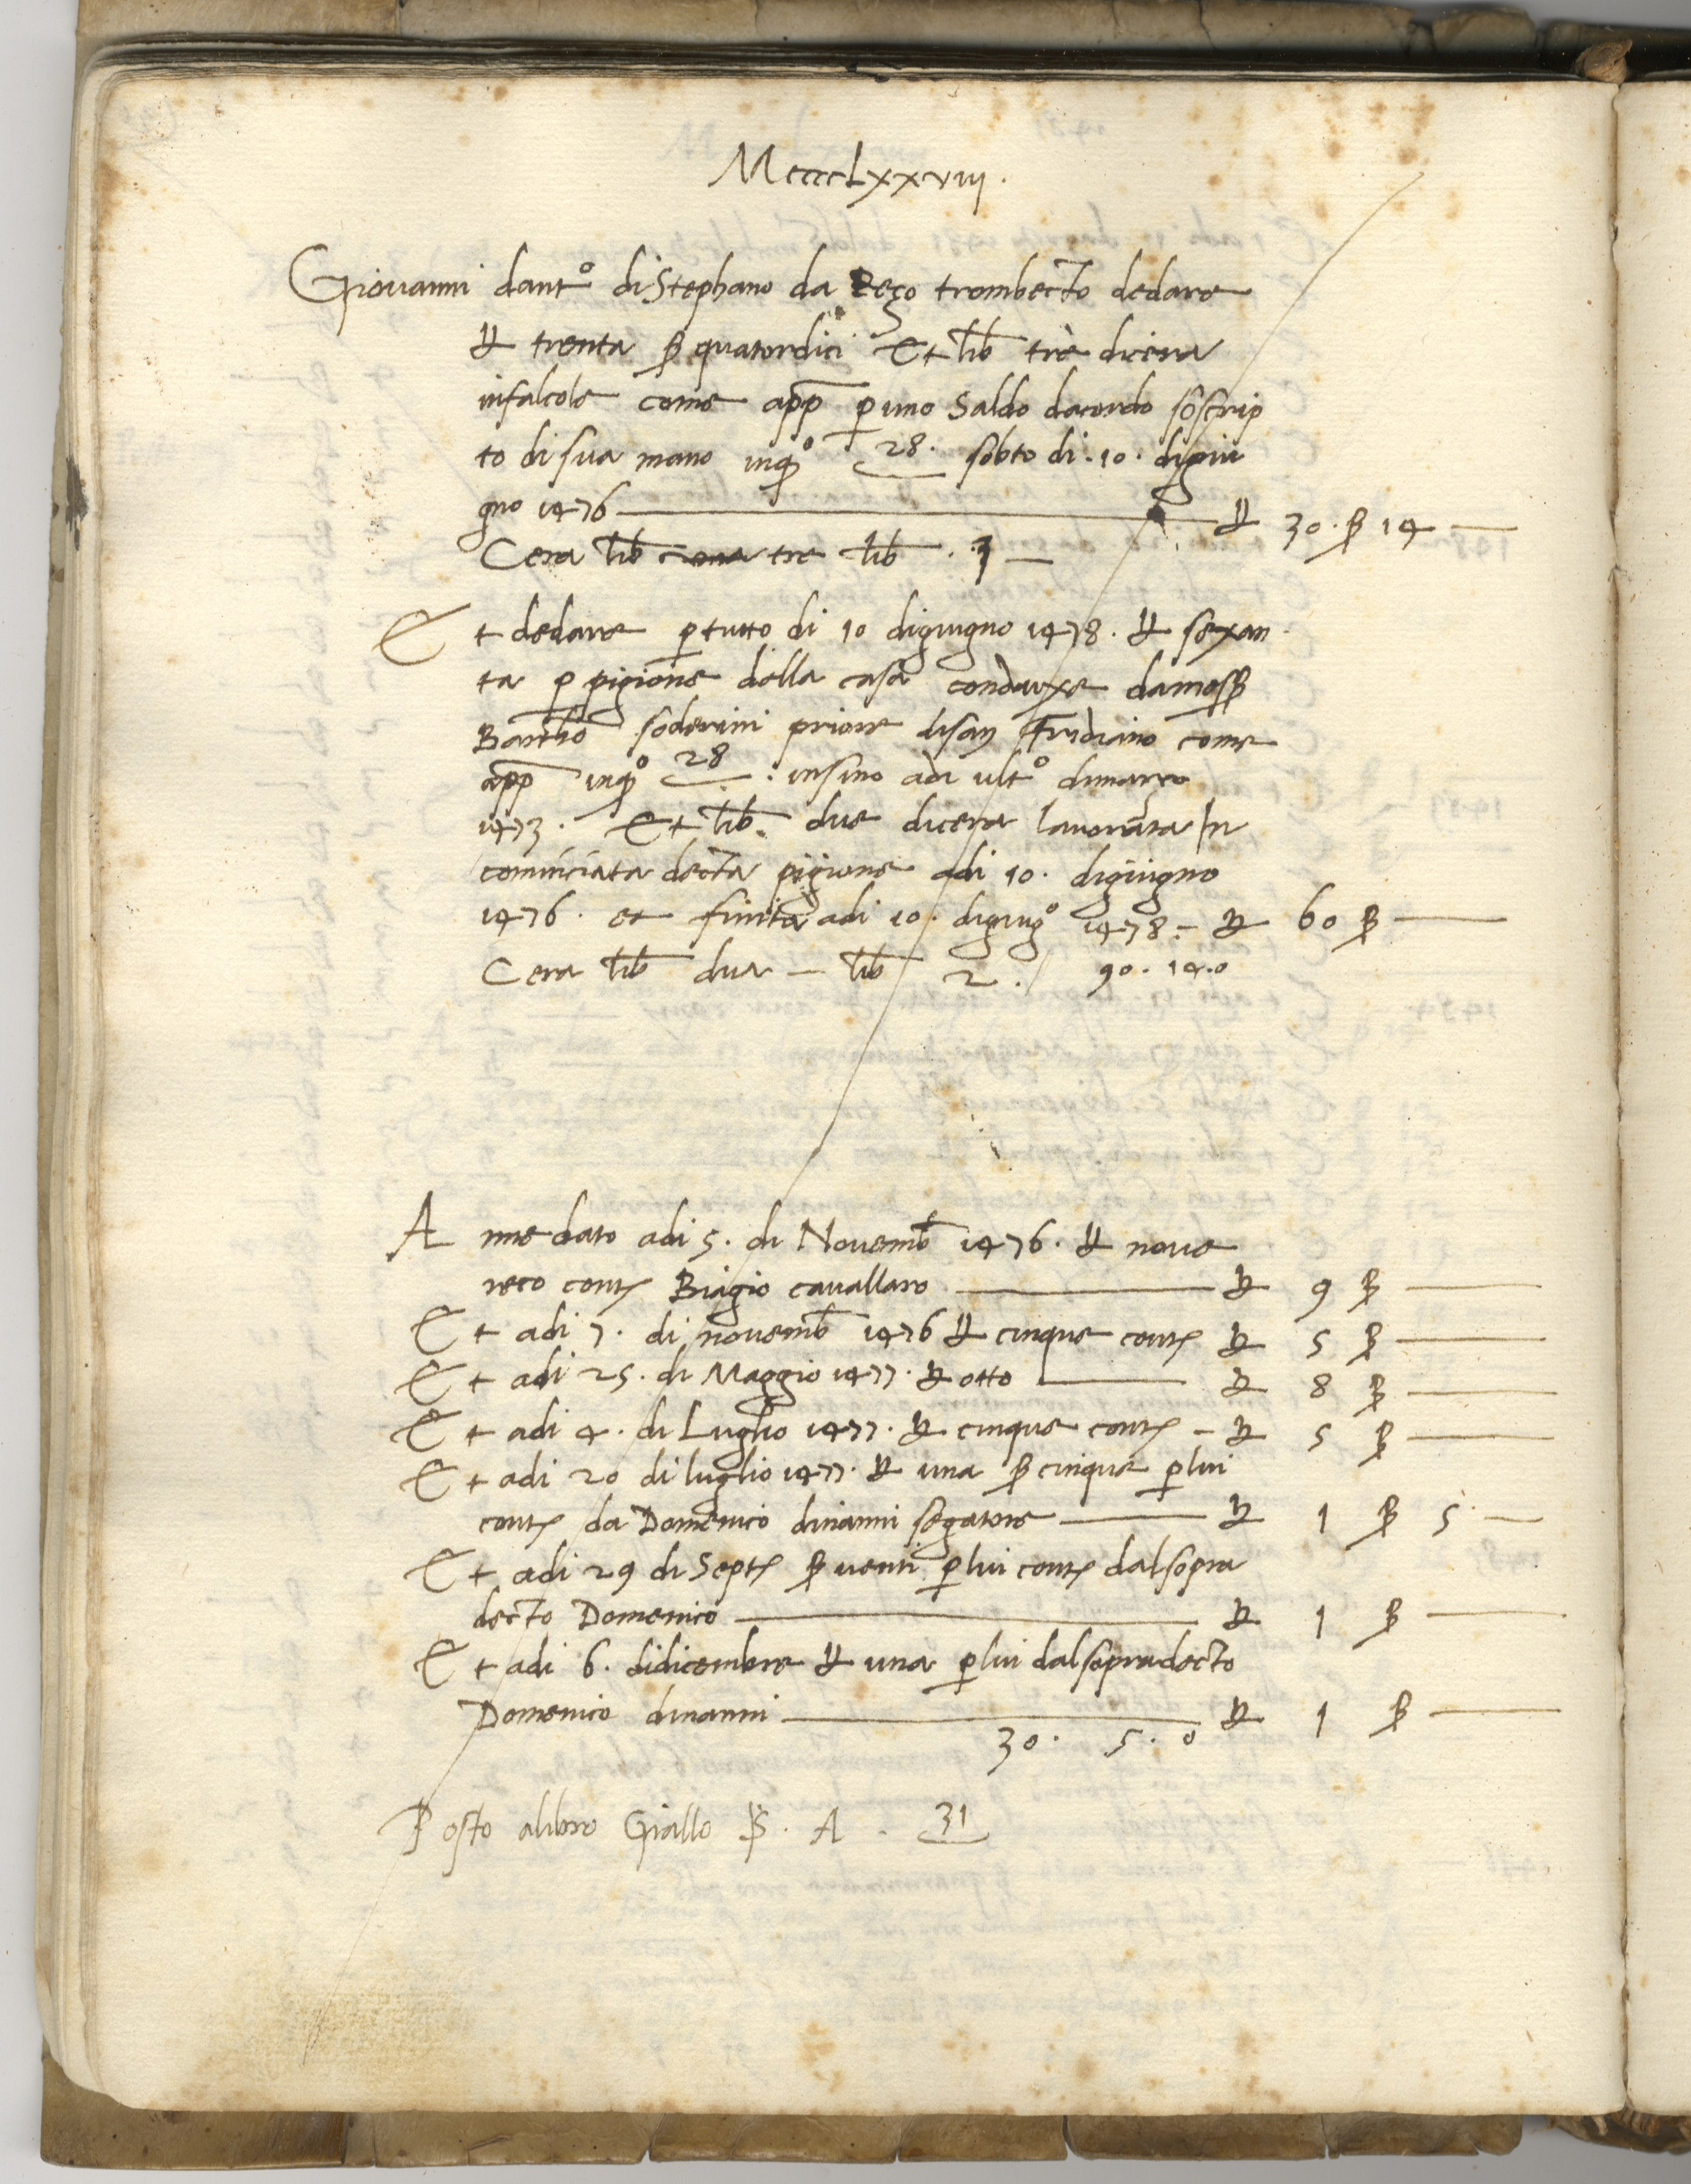 MccccLxxviij.
Giouanni dantº di Stephano da Reço trombecto dedare
℔ trenta β quatordici Et lib tre dicera
infalcole come app p uno Saldo dacordo soscrip
to di sua mano inqº 28. sobto di .10. digiu
gno 1476 ℔ 30. β 14 —
Cera lib tre lib . 3 —
Et dedare p tutto di 10 digiugno 1478. ℔ sexan
ta p pigione della casa condurxe da mess
Bartho soderini priore disan Fridiano come
app inqº 28 . insino adi ultº dimarzo
1473. Et lib. due dicera lauorata In
cominciata decta pigione adi 10. digiugno
1476. et finita adi 10. digiugº 1478 – ℔ 60 β —
Cera lib dua — lib 2. 90. 14. 0
A mme dato adi 5. di Nouemb 1476. ℔ noue
reco cont Biagio cauallaro — ℔ 9 β —
Et adi 7. di nouemb 1476 ℔ cinque cont ℔ 5 β —
Et adi 25. di Maggio 1477. ℔ otto — ℔ 8 β —
Et adi 4. di Luglio 1477. ℔ cinque cont – ℔ 5 β —
Et adi 20 di luglio 1477. ℔ una β cinque p lui
cont da Domenico dinanni segatore — ℔ 1 β 5 —
Et adi 29 di Sept β uenti p lui cont dalsopra
decto Domenico — ℔ 1 β —
Et adi 6. didicembre ℔ una p lui dalsopradecto
Domenico dinanni — ℔ 1 β —
30. 5. 0
Posto alibro Giallo S. A . 31